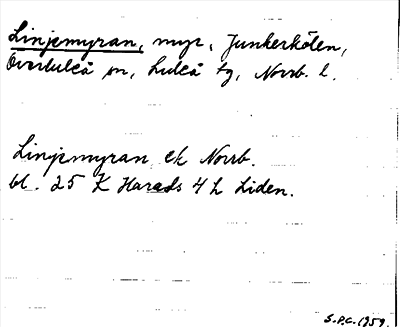 Linjemyran, myr, Junkerkölen,
Överluleå sn, Luleå tg, Norrb. l.
Linjemyran ek Norrb.
bl. 25 K Harads 4 h Liden.
S.P.C. 1959.